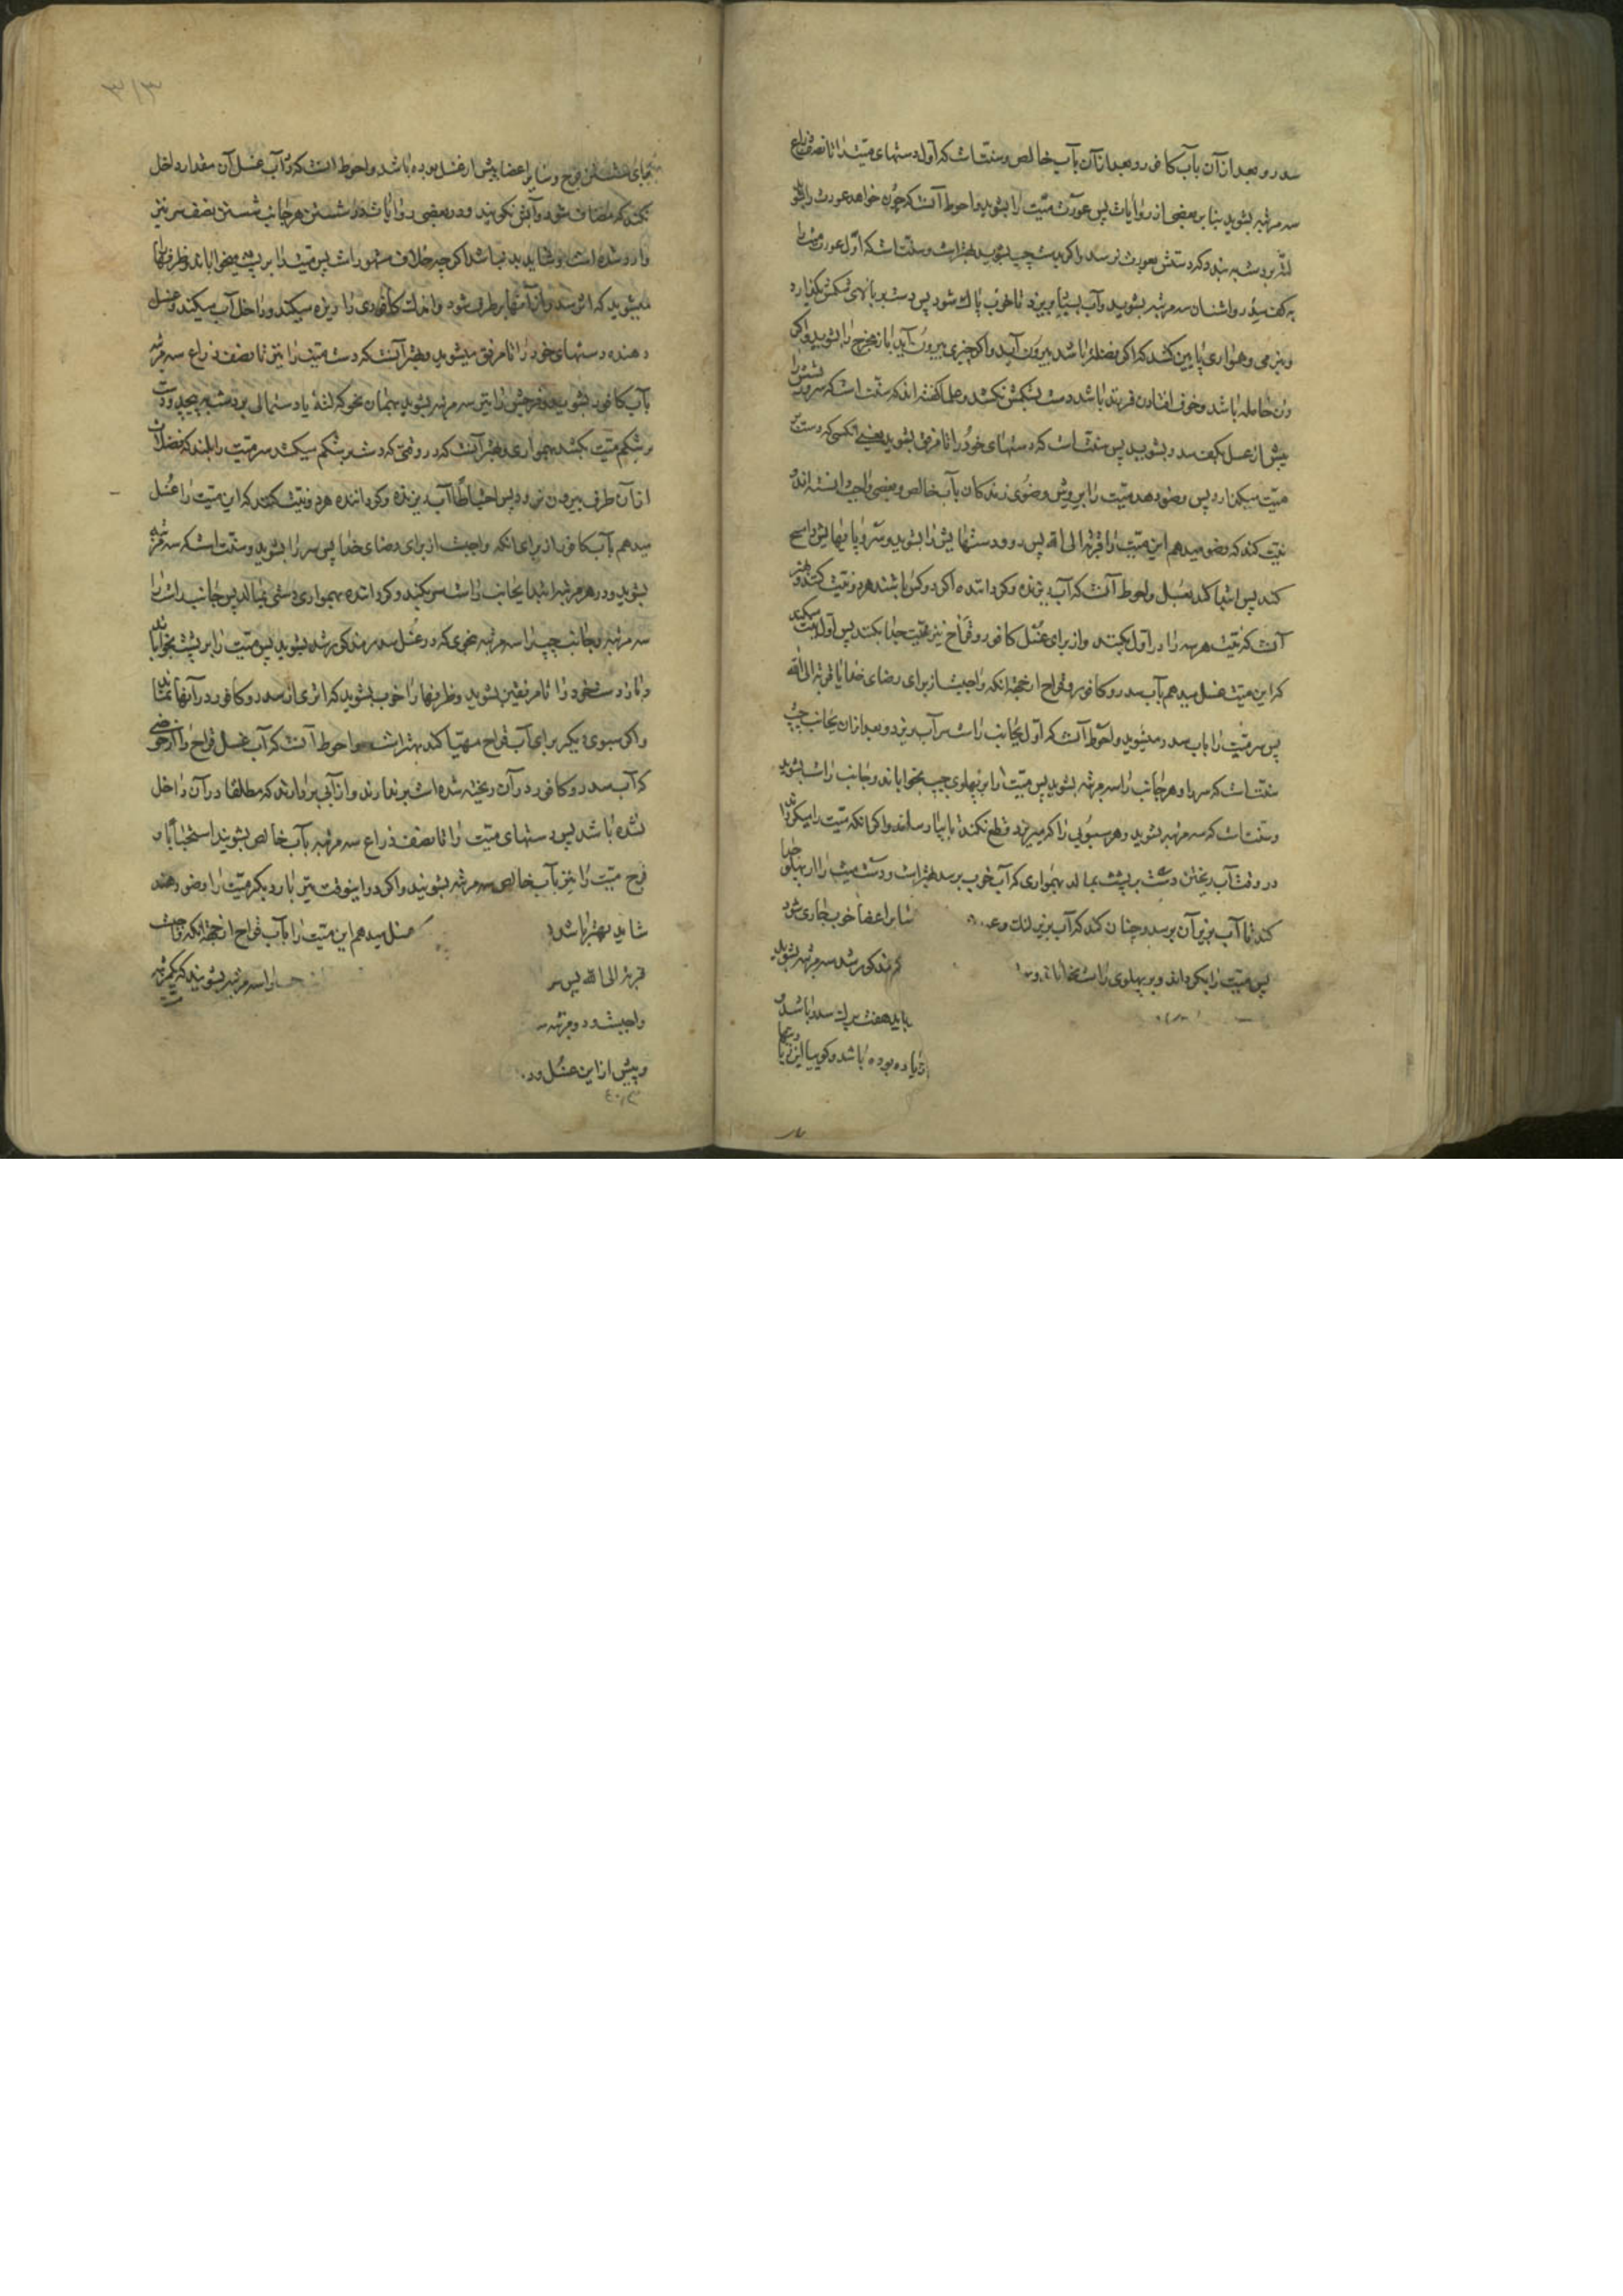 سدر و بعد از آن بآب کافور و بعد از آن بآب خالص و سنت است که اول دستهای میت را تا نصف ذراع
سه مرتبه بشوید بنا بر بعضی از روایات پس عورت میت را بشوید و احوط آنست که چون خواهد عورت را بشوید
لتهٔ بر دست به بندد که دستش بعورت نرسد و اکر بدست چپ بشوید بهتر است و سنت است که اول عورت میت را
به کف سدر و اشنان سه مرتبه بشوید و آب بسیار بریزد تا خوب پاک شود پس دست بر بالای شکمش بکذارد
و بنرمی و همواری پایین کشد که اکر فضلهٔ باشد بیرون آید و اکر چیزی بیرون آید باز مخرج را بشوید و اکر
زن حامله باشد و خوف افتادن فرزند باشد دست بشکمش نکشد و علما کفته اند که سنت است که سر و ریشش را
پیش از غسل بکف سدر بشوید پس سنت است که دستهای خود را تا مرفق بشوید یعنی آنکسی که دست بر
میت میکذارد پس وضو دهد میت را بروش وضوی زندکان بآب خالص و بعضی واجب دانسته اند و
نیت کند که وضو میدهم این میت را قربة الی الله پس رو و دستهایش را بشوید و سر و پایهایش را مسح
کند پس ابتدا کند بغسل و احوط آنست که آب ریزنده و کرداننده اکر دو کس باشند هر دو نیت کنند و بهتر
آنست که نیت هر سه را در اول بکنند و از برای غسل کافور و قراح نیز نیت جدا بکنند پس اول نیت میکنند
که این میت غسل میدهم بآب سدر و کافور و قراح از جهة آنکه واجبست از برای رضای خدا یا قربة الی الله
پس سر میت را باب سدر میشوید و احوط آنست که اول بجانب راست سر آب بریزد و بعد از آن بجانب چپ
سنت است که سر را و هر جانب را سه مرتبه بشوید پس میت را بر پهلوی چپ بخواباند و جانب راست بشوید
و سنت است که سه مرتبه بشوید و هر سبویی را که میریزد قطع نکند تا بپا رساند و اکر آنکه میت را میکرداند
در وقت آب ریختن دست بر پشت بمالد بهمواری که آب خوب برسد بهتر است و دست میت را از پهلو جدا
کند تا آب بزیر آن برسد و چنان کند که آب بزیر لنک و سایر اعضا خوب جاری شود
پس میت را بکرداند و بر پهلوی راست بخواباند مذکور شد سه مرتبه بشوید
باید هفت برک سدر باشد و
زیاده بوده باشد و کویا این
بجای شستن فرج و سایر اعضا پیش از غسل بوده باشد و احوط آنست که در آب غسل آن مقدار داخل
نکند که مضاف شود و آبش نکویند و در بعضی روایات در شستن هر جانب شستن نصف سر نیز
وارد شده است و شاید بد نباشد اکر چه خلاف مشهور است پس میت را بر پشت میخواباند و ظرفها
میشوید که اثر سدر از آنها برطرف شود و اندک کافوری را ریزه میکند و داخل آب میکند و غسل
دهنده دستهای خود را تا مرفق میشوید و بهتر آنست که دست میت را نیز تا نصف ذراع سه مرتبه
بآب کافور بشوید و فرجش را نیز سه مرتبه بشوید بهمان نحو که لتهٔ یا دستمالی بر دست به پیچد و دست
بر شکم میت بکشد بهمواری و بهتر آنست که در وقتی که دست بر شکم میکشد سر میت را بلند که فضلات
از آن طرف بیرون نرود پس احتیاطاً آب ریزنده و کرداننده هر دو نیت کنند که این میت را غسل
میدهم بآب کافور از برای آنکه واجبست از برای رضای خدا پس سر را بشوید و سنت است که سه مرتبه
بشوید و در هر مرتبه ابتدا بجانب راست سر بکنند و کرداننده بهمواری دستی بمالد پس جانب راست را
سه مرتبه و جانب چپ را سه مرتبه بنحوی که در غسل سدر مذکور شد بشوید پس میت را بر پشت بخواباند
و باز دست خود را تا مرفقین بشوید و ظرفها را خوب بشوید که اثری از سدر و کافور در آنها نماند
و اکر سبوی دیکر برای آب قراح مهیا کند بهتر است و احوط آنست که آب غسل قراح را از حوضی
که آب سدر و کافور در آن ریخته شده است برندارند و از آبی بردارند که مطلقا در آن داخل
نشده باشد پس دستهای میت را تا نصف ذراع سه مرتبه بآب خالص بشویند استحباباً و
فرج میت را نیز بآب خالص سه مرتبه بشویند و اکر در اینوقت نیز بار دیکر میت را وضو دهند
شاید بهتر باشد غسل میدهم این میت را بآب قراح از جهة آنکه واجبست
قربة الی الله پس سر را سه مرتبه بشویند که یکمرتبه
واجبست و دو مرتبه
و پیش از این غسل